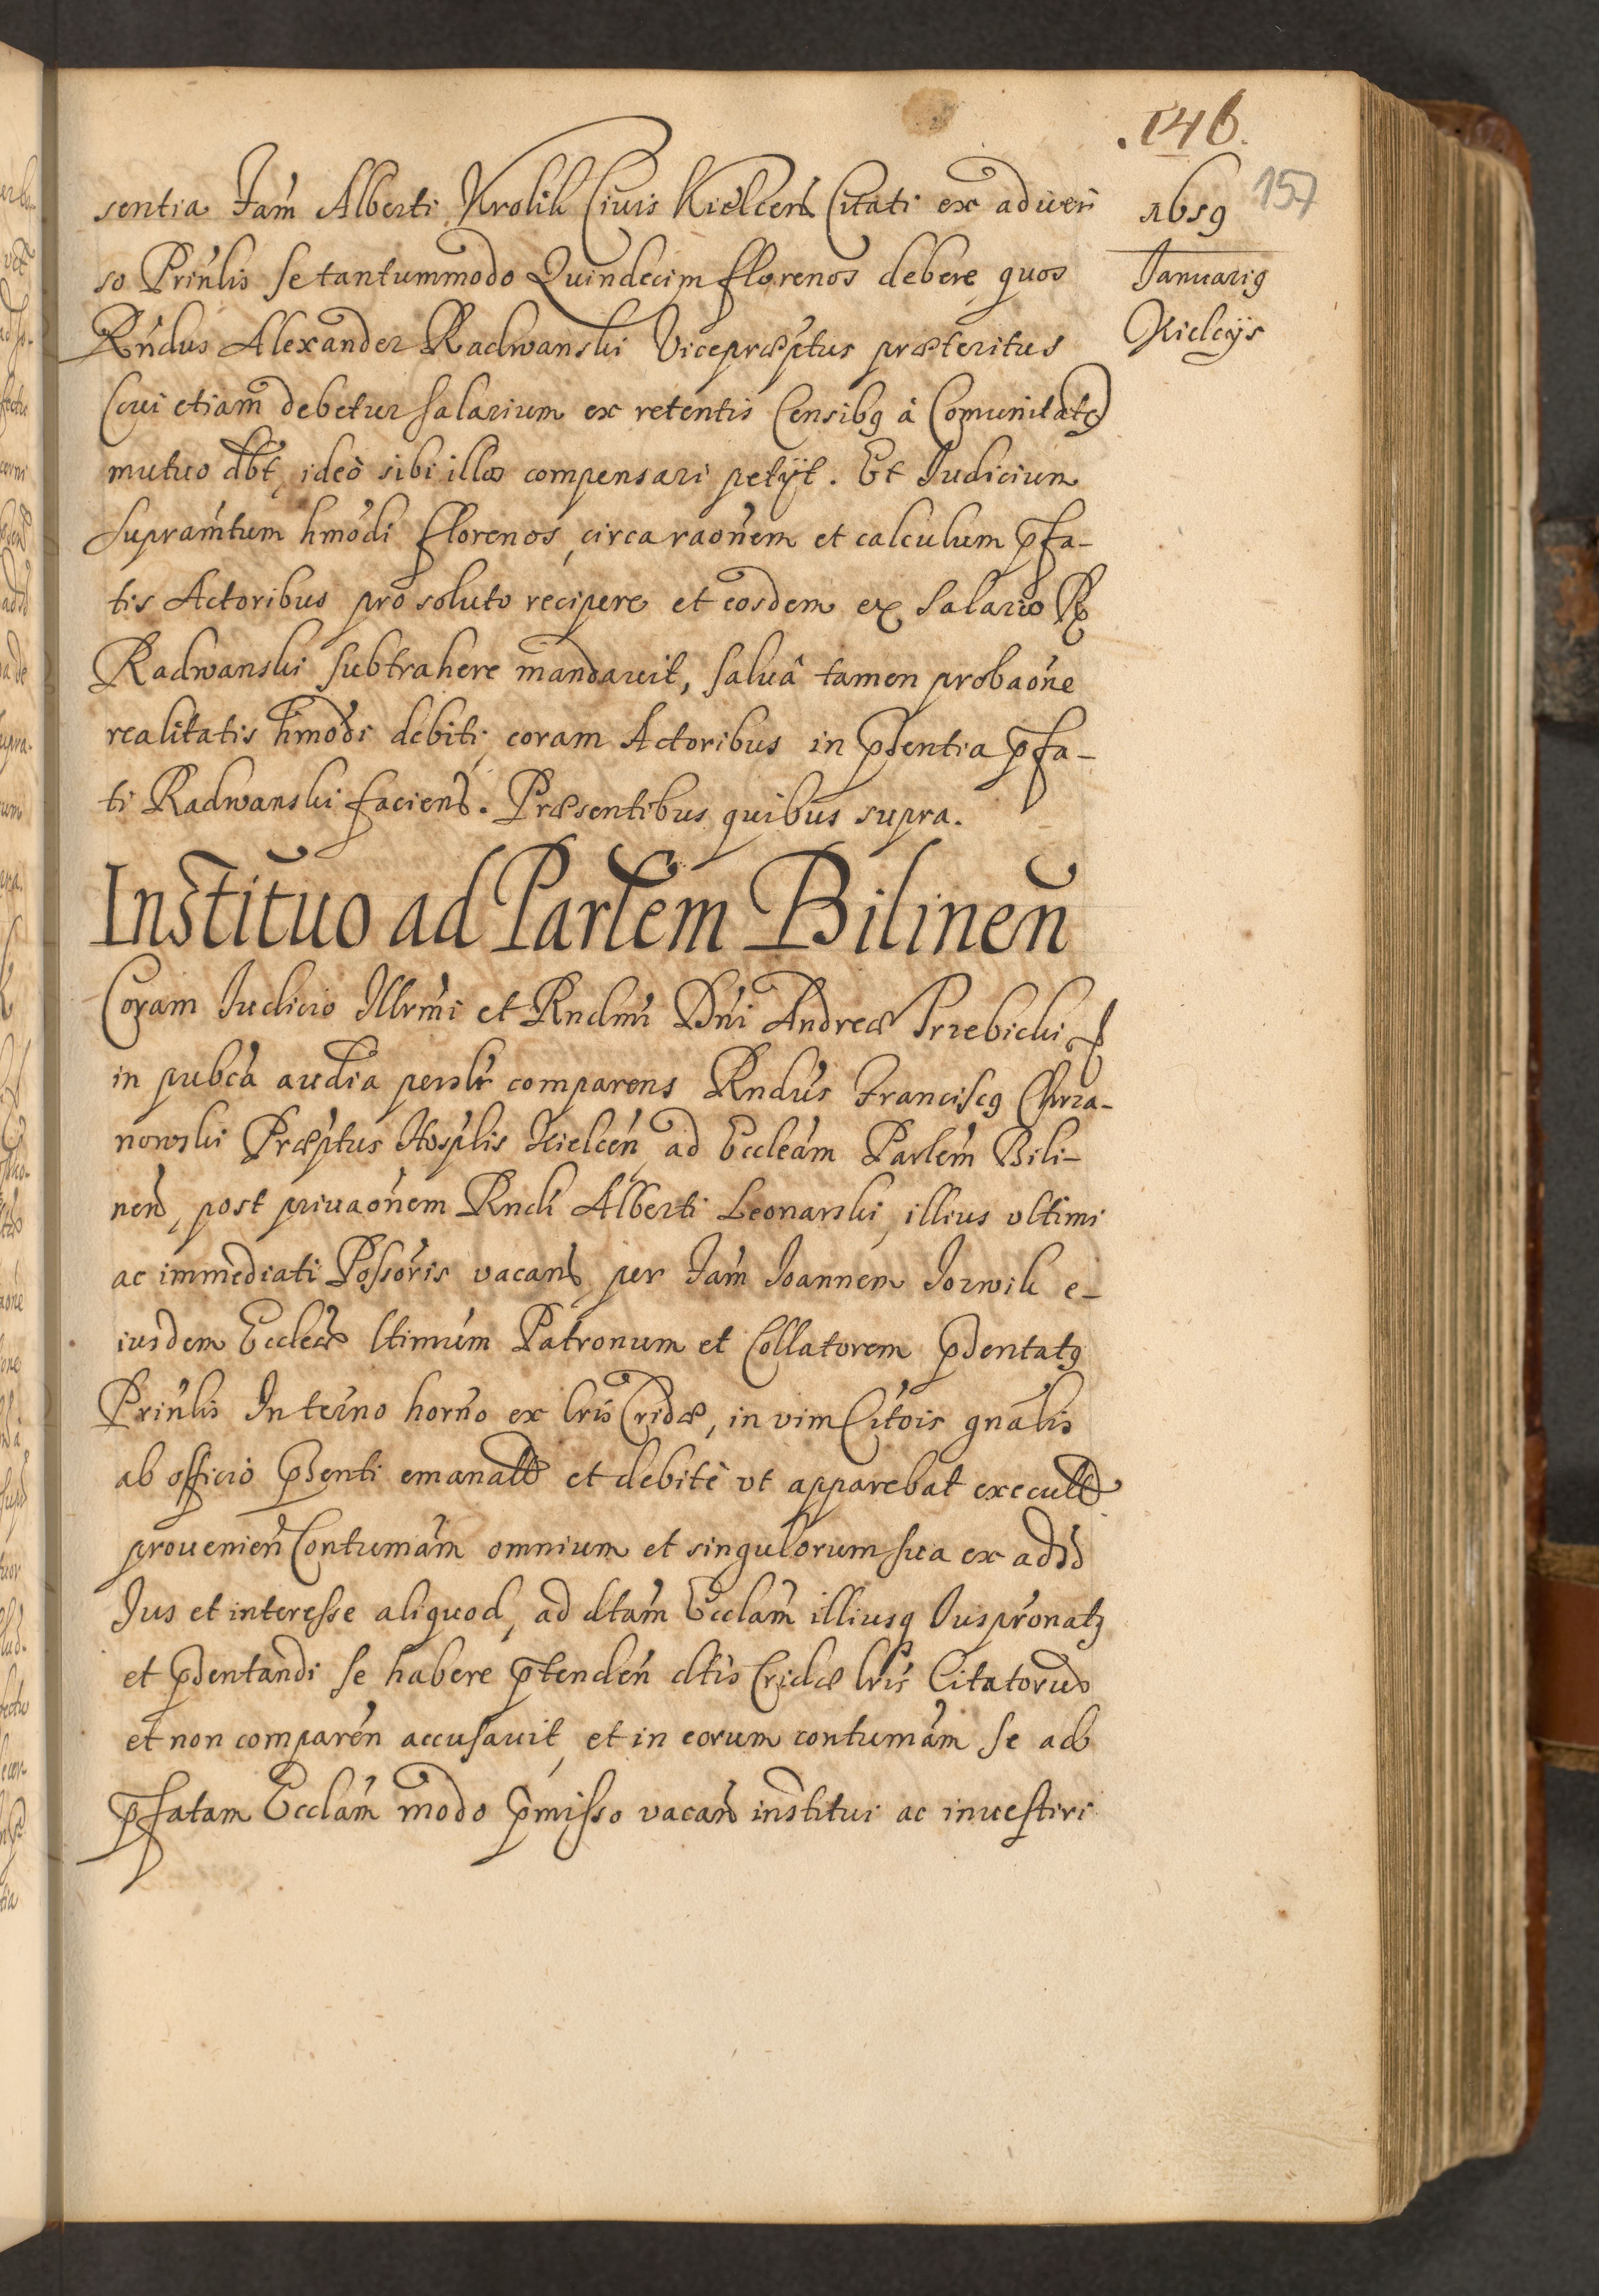 .146.
157
1659
Januarig
Kielcijs
sentia Fam̃ Alberti Krolik Ciuis Kielceñ Citati ex aduerñ
so Prin̄lis se tantummodo Quindecim florenos debere quos
Rn̄dus Alexander Radwanski Vicepræptus præteritus
Cui etiam debetur salarium ex retentis Censibg à Comunitate
mutuo dbt, ideò sibi illos compensari petijt. Et Judicium
supram̄tum hmōdi florenos, circa raōnem et calculum p̄fa-
tis Actoribus pro soluto recipere et eosdem ex Salario R
Radwanski subtrahere mandauit, saluâ tamen probaōne
realitatis hmōdi debiti, coram Actoribus in p̄sentia p̄fa-
ti Radwanski facienđ. Præsentibus quibus supra.
Institũuo ad Parlem Bilineñ
Coram Judicio Illrm̄i et Rndmi Dn̄i Andreæ Trzebicki
in pubca audia persōlr comparens Rndus Francisc9 Chrza-
nowski Præptus Hosplis Kielceñ ad Eccleam Parlem Bili-
neñ, post priuaōnem Rndi Alberti Leonarski, illius vltimi
ac immediati Possōris vacanŧ, per Fam̃ Joannem Jozwik e-
iusdem Eccleæ ltimum Patronum et Collatorem p̄sentat9
Prin̄lis In terño horño ex lris Cridæ, in vim Citōis gnālis
ab officio p̄senti emanatt et debitè vt apparebat executt
prouenieñ Contumām omnium et singulorum sua ex add
Jus et interesse aliquod, ad dtam Ecclām illiusq Juspr̄onatg
et p̄sentandi se habere p̄tendeñ dtis Cridæ lris Citatorum
et non compareñ accusauit, et in eorum contumām se ad
p̄fatam Ecclām modo p̄misso vacañ institui ac inuestiri